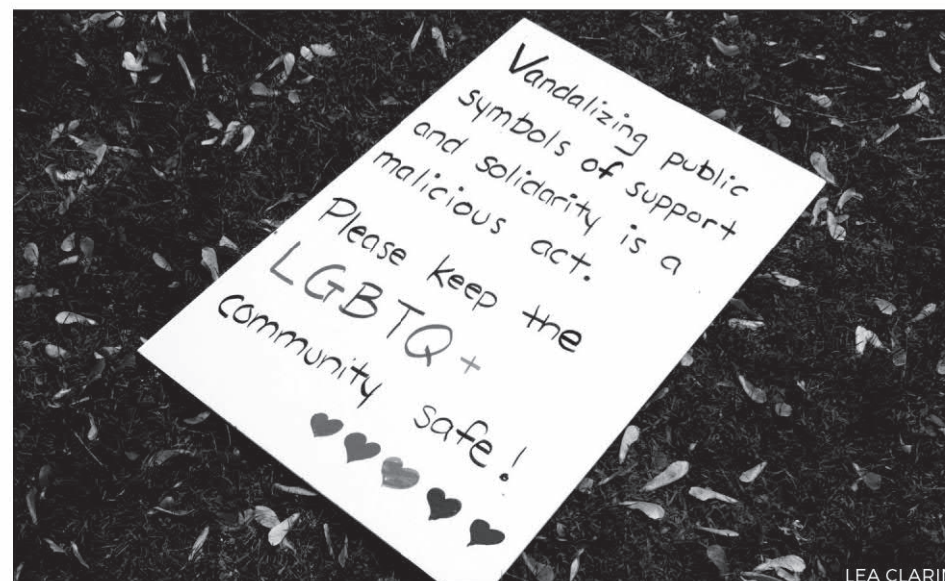 Vandalizing public
symbols of support
and solidarity is a
malicious act.
Please keep the
LGBTQ+
community safe!
LEA CLARIN